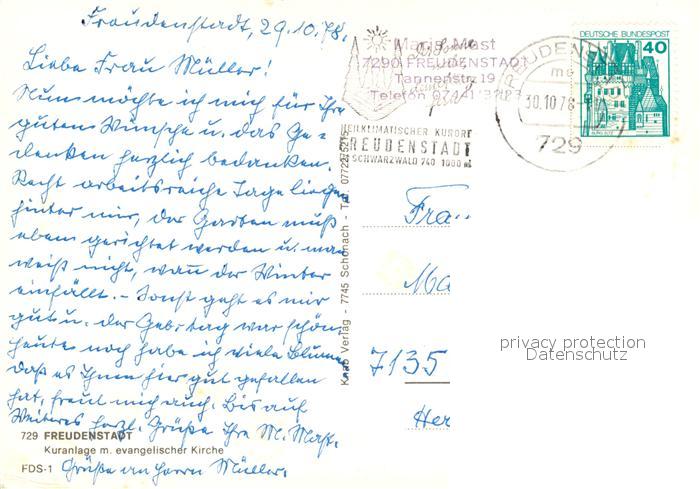 Freudenstadt, 29.10.78.
Liebe Frau Müller!
Nun möchte ich mich für Ihre
guten Wünsche u. das Ge-
denken herzlich bedanken.
Recht arbeitsreiche Tage liegen
hinter mir, der Garten muß
eben gerichtet werden u. man
weiß nicht, wann der Winter
einfällt. - Sonst geht es mir
gut u. der Gebstag war schön
heute noch habe ich viele Blumen
daß es Ihnen hier gut gefallen
hat, freut mich auch. Bis auf
Weiteres herzl. Grüße Ihre M. Mast.
Grüße an Herrn Müller.
729 FREUDENSTADT
Kuranlage m. evangelischer Kirche
FDS-1
Maria Mast
7290 FREUDENSTADT
Tannenstr. 19
Telefon
HEILKLIMATISCHER KURORT
FREUDENSTADT
SCHWARZWALD 740 1000 m
FREUDENSTADT
mc
30.10.78
729
DEUTSCHE BUNDESPOST
40
Verlag - 7745 Schonach - Tel. 07722/521
Frau
Ma
7135
Her
privacy protection
Datenschutz